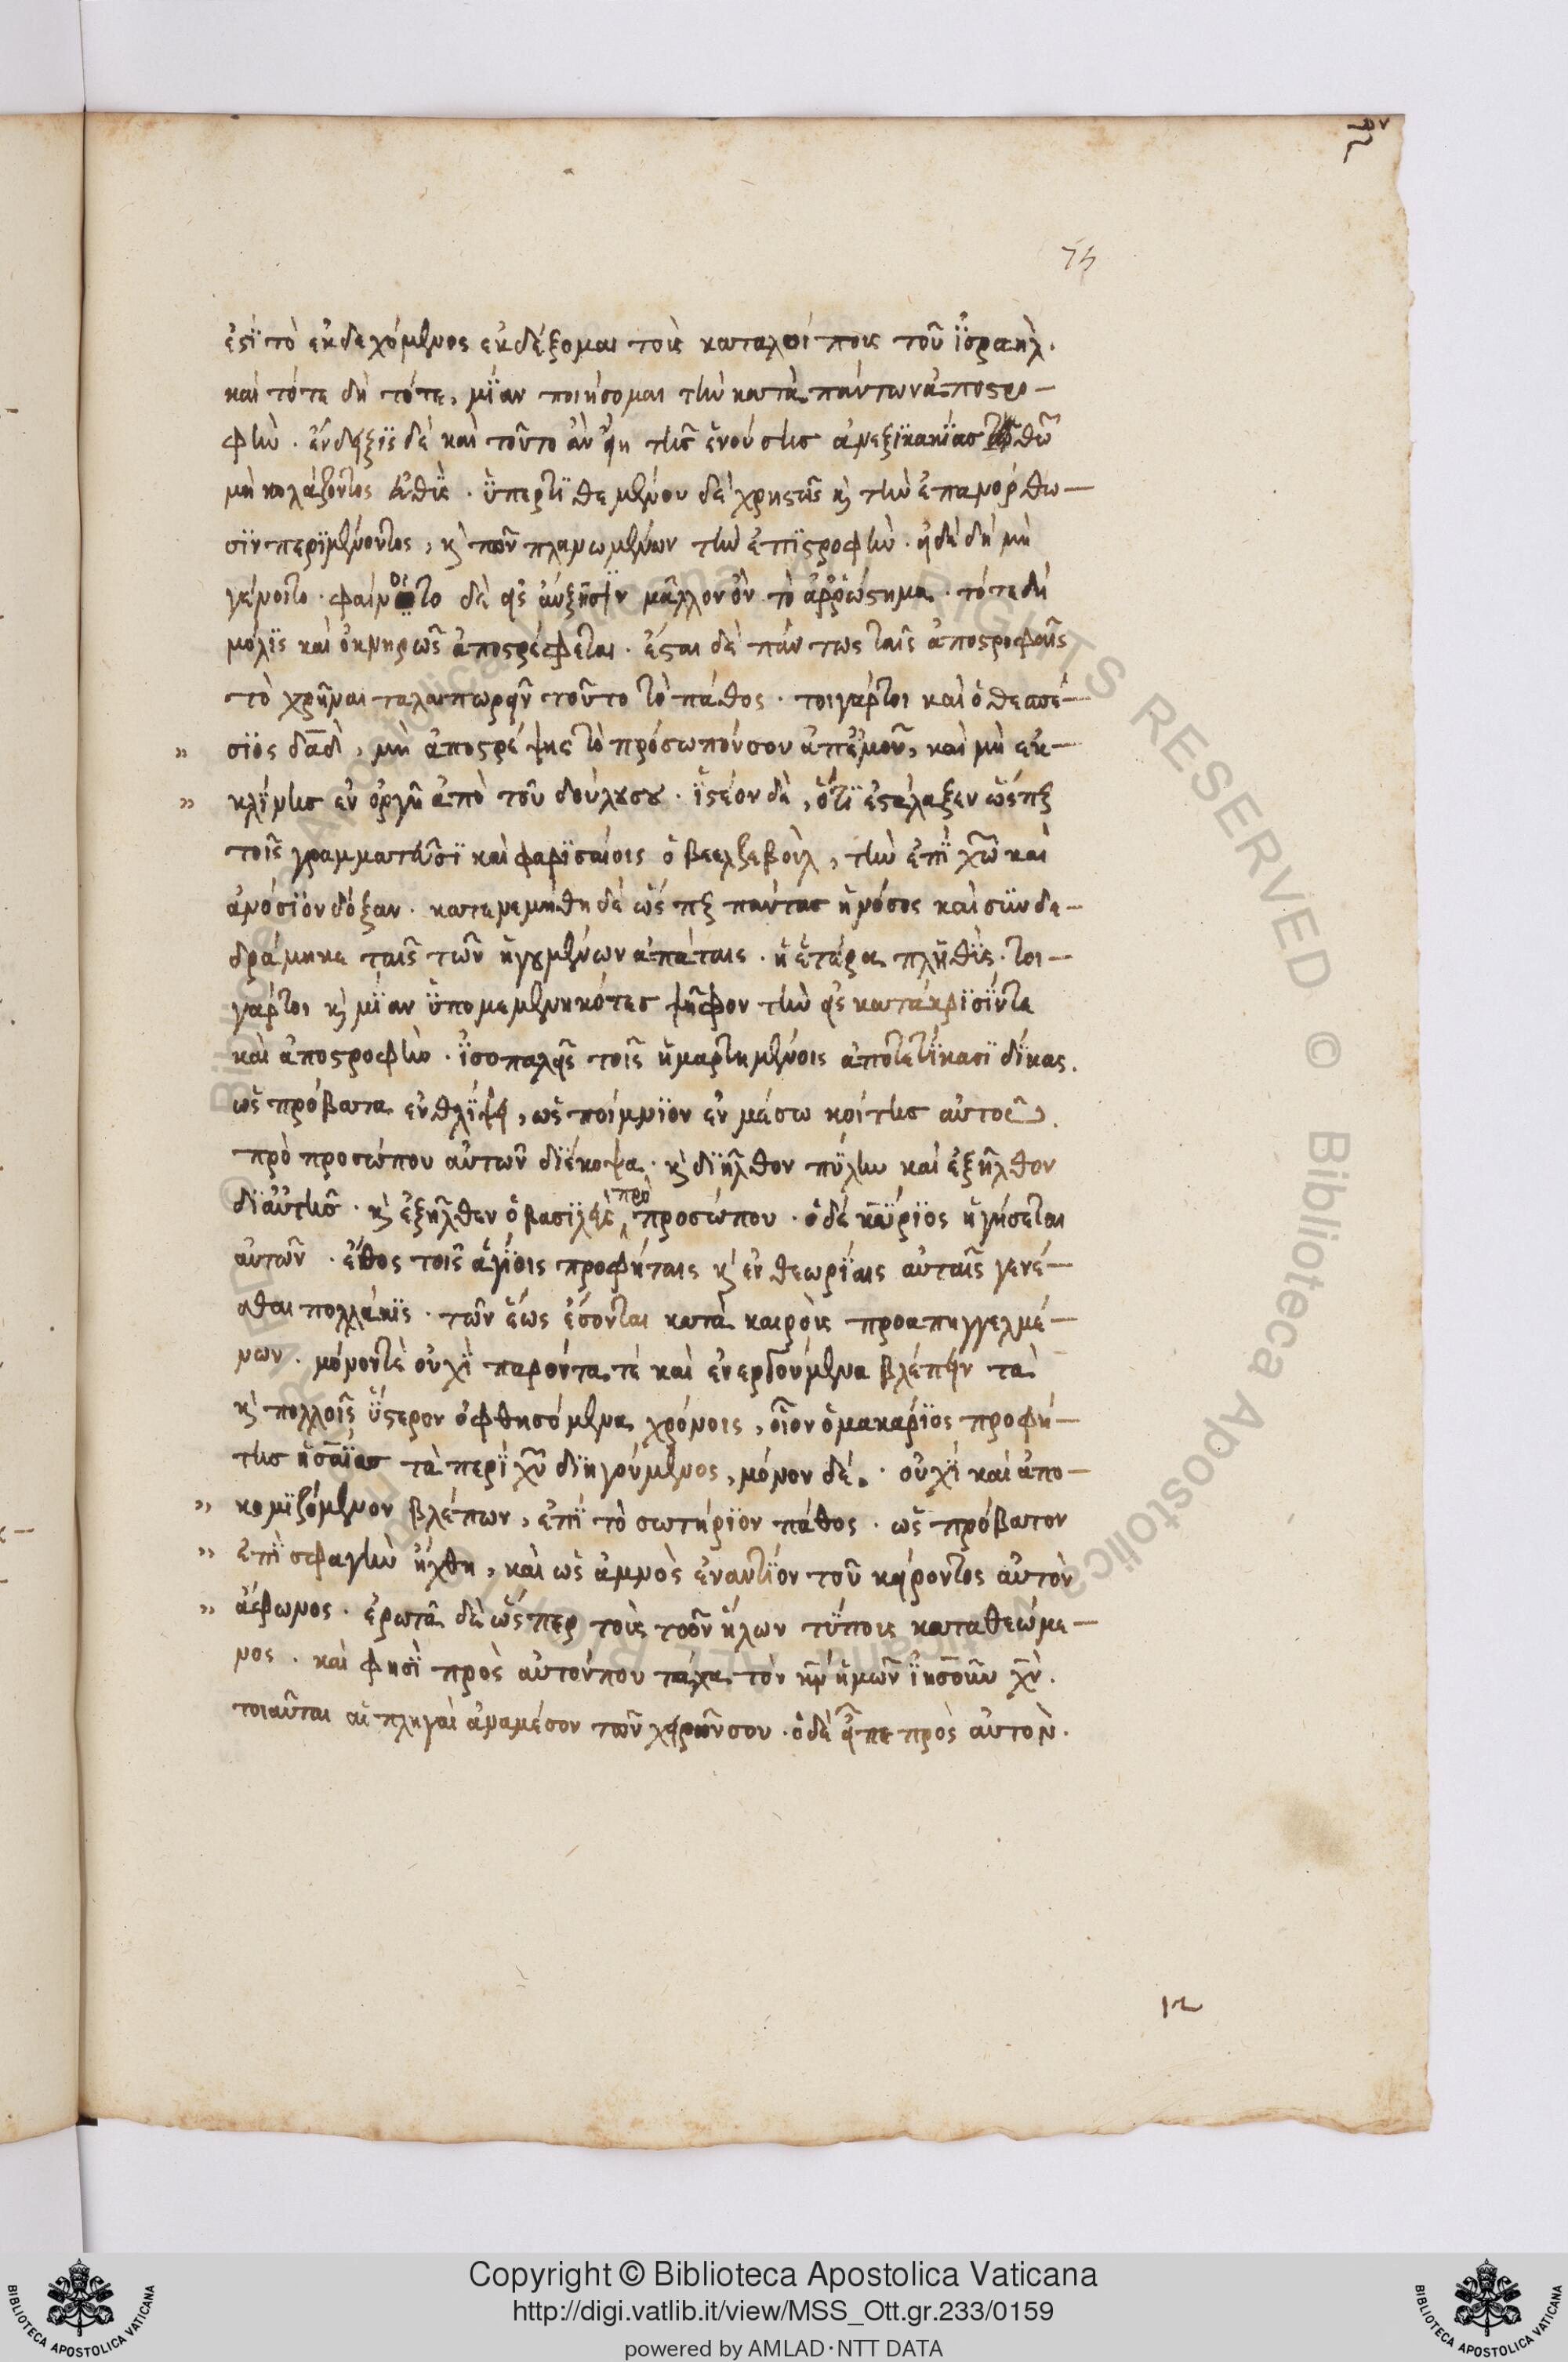 75
ἐστὶ τὸ ἐκδεχόμενος ἐκδέξομαι τοὺς καταλοίπους τοῦ ἰσραὴλ.
καὶ τότε δὴ τότε, μίαν ποιήσομαι τὴν κατὰ πάντων ἀποστρο-
φὴν. ἔνδειξις δὲ καὶ τοῦτο ἂν εἴη τῆς ἐνούσης ἀνεξικακίας θῶ
μὴ κολάζοντος εὐθὺς. ὑπερτιθεμένου δὲ χρηστῶς κ τὴν ἐπανόρθω-
σιν περιμένοντος, κ τῶν πλανωμένων τὴν ἐπιστροφὴν. εἰ δὲ δὴ μὴ
γένοιτο. φαίνοιτο δὲ εἰς αὔξησιν μᾶλλον ὂν τὸ ἀρρώστημα. τότε δὴ
μόλις καὶ ὀκνηρῶς ἀποστρέφεται. ἔσται δὲ πάντως ταῖς ἀποστροφαῖς
τὸ χρῆναι ταλαιπωρεῖν τοῦτο τὸ πάθος. τοιγάρτοι καὶ ὁ θεσπέ-
» σιος δαδ, μὴ ἀποστρέψης τὸ πρόσωπόν σου ἀπ' ἐμοῦ, καὶ μὴ ἐκ-
» κλίνης ἐν ὀργῆ ἀπὸ τοῦ δούλου σου. ἰστέον δὲ, ὅτι ἐστάλαξεν ὥσπερ
τοῖς γραμματεῦσι καὶ φαρισαίοις ὁ βεελζεβοὺλ, τὴν ἐπὶ χῶ καὶ
ἀνόσιον δόξαν. κατενεμήθη δὲ ὥσπερ πάντας ἡ νόσος καὶ συνδε-
δράμηκε ταῖς τῶν ἡγουμένων ἀπάταις. ἡ ἑτέρα πληθὺς. τοι-
γάρτοι κ μίαν ὑπομεμενηκότες ψῆφον τὴν εἰς κατάκρισίν τε
καὶ ἀποστροφὴν. ἰσοπαλεῖς τοῖς ἡμαρτημένοις ἀποτετίκασι δίκας.
ὡς πρόβατα ἐν θλίψει, ὡς ποίμνιον ἐν μέσω κοίτης αὐτοῦ.
πρὸ προσώπου αὐτῶν διέκοψα. κ διῆλθον πύλην καὶ ἐξῆλθον
δι' αὐτῆς. κ ἐξῆλθεν ὁ βασιλεὺς πρὸ προσώπου. ὁ δὲ κύριος ἡγήσεται
αὐτῶν. ἔθος τοῖς ἁγίοις προφήταις κ ἐν θεωρίαις αὐταῖς γενέ-
σθαι πολλάκις. τῶν ἕως ἔσονται κατὰ καιροὺς προαπηγγελμέ-
νων. μόνον τὲ οὐχὶ παρόντα τὲ καὶ ἐνεργούμενα βλέπειν τὰ
κ πολλοῖς ὕστερον ὀφθησόμενα χρόνοις, οἷον ὁ μακάριος προφή-
της ἡσαΐας τὰ περὶ χῦ διηγούμενος, μόνον δέ. οὐχὶ καὶ ἀπο-
» κομιζόμενον βλέπων, ἐπὶ τὸ σωτήριον πάθος. ὡς πρόβατον
» ἐπὶ σφαγὴν ἤχθη, καὶ ὡς ἀμνὸς ἐναντίον τοῦ κείροντος αὐτὸν
» ἄφωνος. ἐρωτᾶ δὲ ὥσπερ τοὺς τῶν ἥλων τύπους καταθεώμε-
νος. καὶ φησὶ πρὸς αὐτόν που τάχα τὸν κν ἡμῶν ἰησοῦν χν.
τοιαῦται αἱ πληγαὶ ἀναμέσον τῶν χειρῶν σου. ὁ δὲ εἶπε πρὸς αὐτὸν.
Copyright © Biblioteca Apostolica Vaticana
http://digi.vatlib.it/view/MSS_Ott.gr.233/0159
powered by AMLAD·NTT DATA